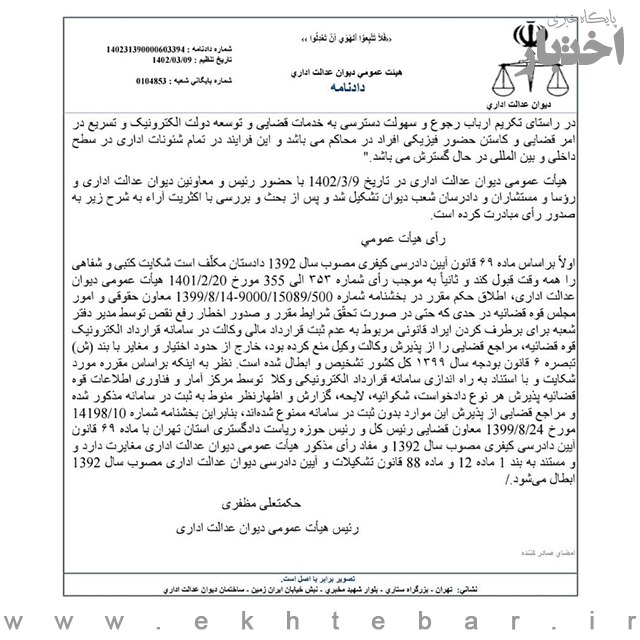 پایگاه خبری
اختبار
«فَلَا تَتَّبِعُوا الْهَوَىٰ أَنْ تَعْدِلُوا»
شماره دادنامه : 140231390000603394
تاریخ تنظیم : 1402/03/09
شماره بایگانی شعبه : 0104853
هیئت عمومی دیوان عدالت اداری
دادنامه
دیوان عدالت اداری
در راستای تکریم ارباب رجوع و سهولت دسترسی به خدمات قضایی و توسعه دولت الکترونیک و تسریع در
امر قضایی و کاستن حضور فیزیکی افراد در محاکم می باشد و این فرایند در تمام شئونات اداری در سطح
داخلی و بین المللی در حال گسترش می باشد."
هیأت عمومی دیوان عدالت اداری در تاریخ 1402/3/9 با حضور رئیس و معاونین دیوان عدالت اداری و
رؤسا و مستشاران و دادرسان شعب دیوان تشکیل شد و پس از بحث و بررسی با اکثریت آراء به شرح زیر به
صدور رأی مبادرت کرده است.
رأی هیأت عمومی
اولاً براساس ماده ۶۹ قانون آیین دادرسی کیفری مصوب سال 1392 دادستان مکلّف است شکایت کتبی و شفاهی
را همه وقت قبول کند و ثانیاً به موجب رأی شماره ۳۵۳ الی 355 مورخ 1401/2/20 هیأت عمومی دیوان
عدالت اداری، اطلاق حکم مقرر در بخشنامه شماره 9000/15089/500-1399/8/14 معاون حقوقی و امور
مجلس قوه قضائیه در حدی که حتی در صورت تحقّق شرایط مقرر و صدور اخطار رفع نقص توسط مدیر دفتر
شعبه برای برطرف کردن ایراد قانونی مربوط به عدم ثبت قرارداد مالی وکالت در سامانه قرارداد الکترونیک
قوه قضائیه، مراجع قضایی را از پذیرش وکالت وکیل منع کرده بود، خارج از حدود اختیار و مغایر با بند (ش)
تبصره ۶ قانون بودجه سال ۱۳۹۹ کل کشور تشخیص و ابطال شده است. نظر به اینکه براساس مقرره مورد
شکایت و با استناد به راه اندازی سامانه قرارداد الکترونیکی وکلا توسط مرکز آمار و فناوری اطلاعات قوه
قضائیه پذیرش هر نوع دادخواست، شکوائیه، لایحه، گزارش و اظهارنظر منوط به ثبت در سامانه مذکور شده
و مراجع قضایی از پذیرش این موارد بدون ثبت در سامانه ممنوع شده‌اند، بنابراین بخشنامه شماره 14198/10
مورخ 1399/8/24 معاون قضایی رئیس کل و رئیس حوزه ریاست دادگستری استان تهران با ماده ۶۹ قانون
آیین دادرسی کیفری مصوب سال 1392 و مفاد رأی مذکور هیأت عمومی دیوان عدالت اداری مغایرت دارد و
و مستند به بند 1 ماده 12 و ماده 88 قانون تشکیلات و آیین دادرسی دیوان عدالت اداری مصوب سال 1392
ابطال می‌شود./
حکمتعلی مظفری
رئیس هیأت عمومی دیوان عدالت اداری
امضای صادر کننده
تصویر برابر با اصل است.
نشانی: تهران - بزرگراه ستاری - بلوار شهید مخبری - نبش خیابان ایران زمین - ساختمان دیوان عدالت اداری
www.ekhtebar.ir